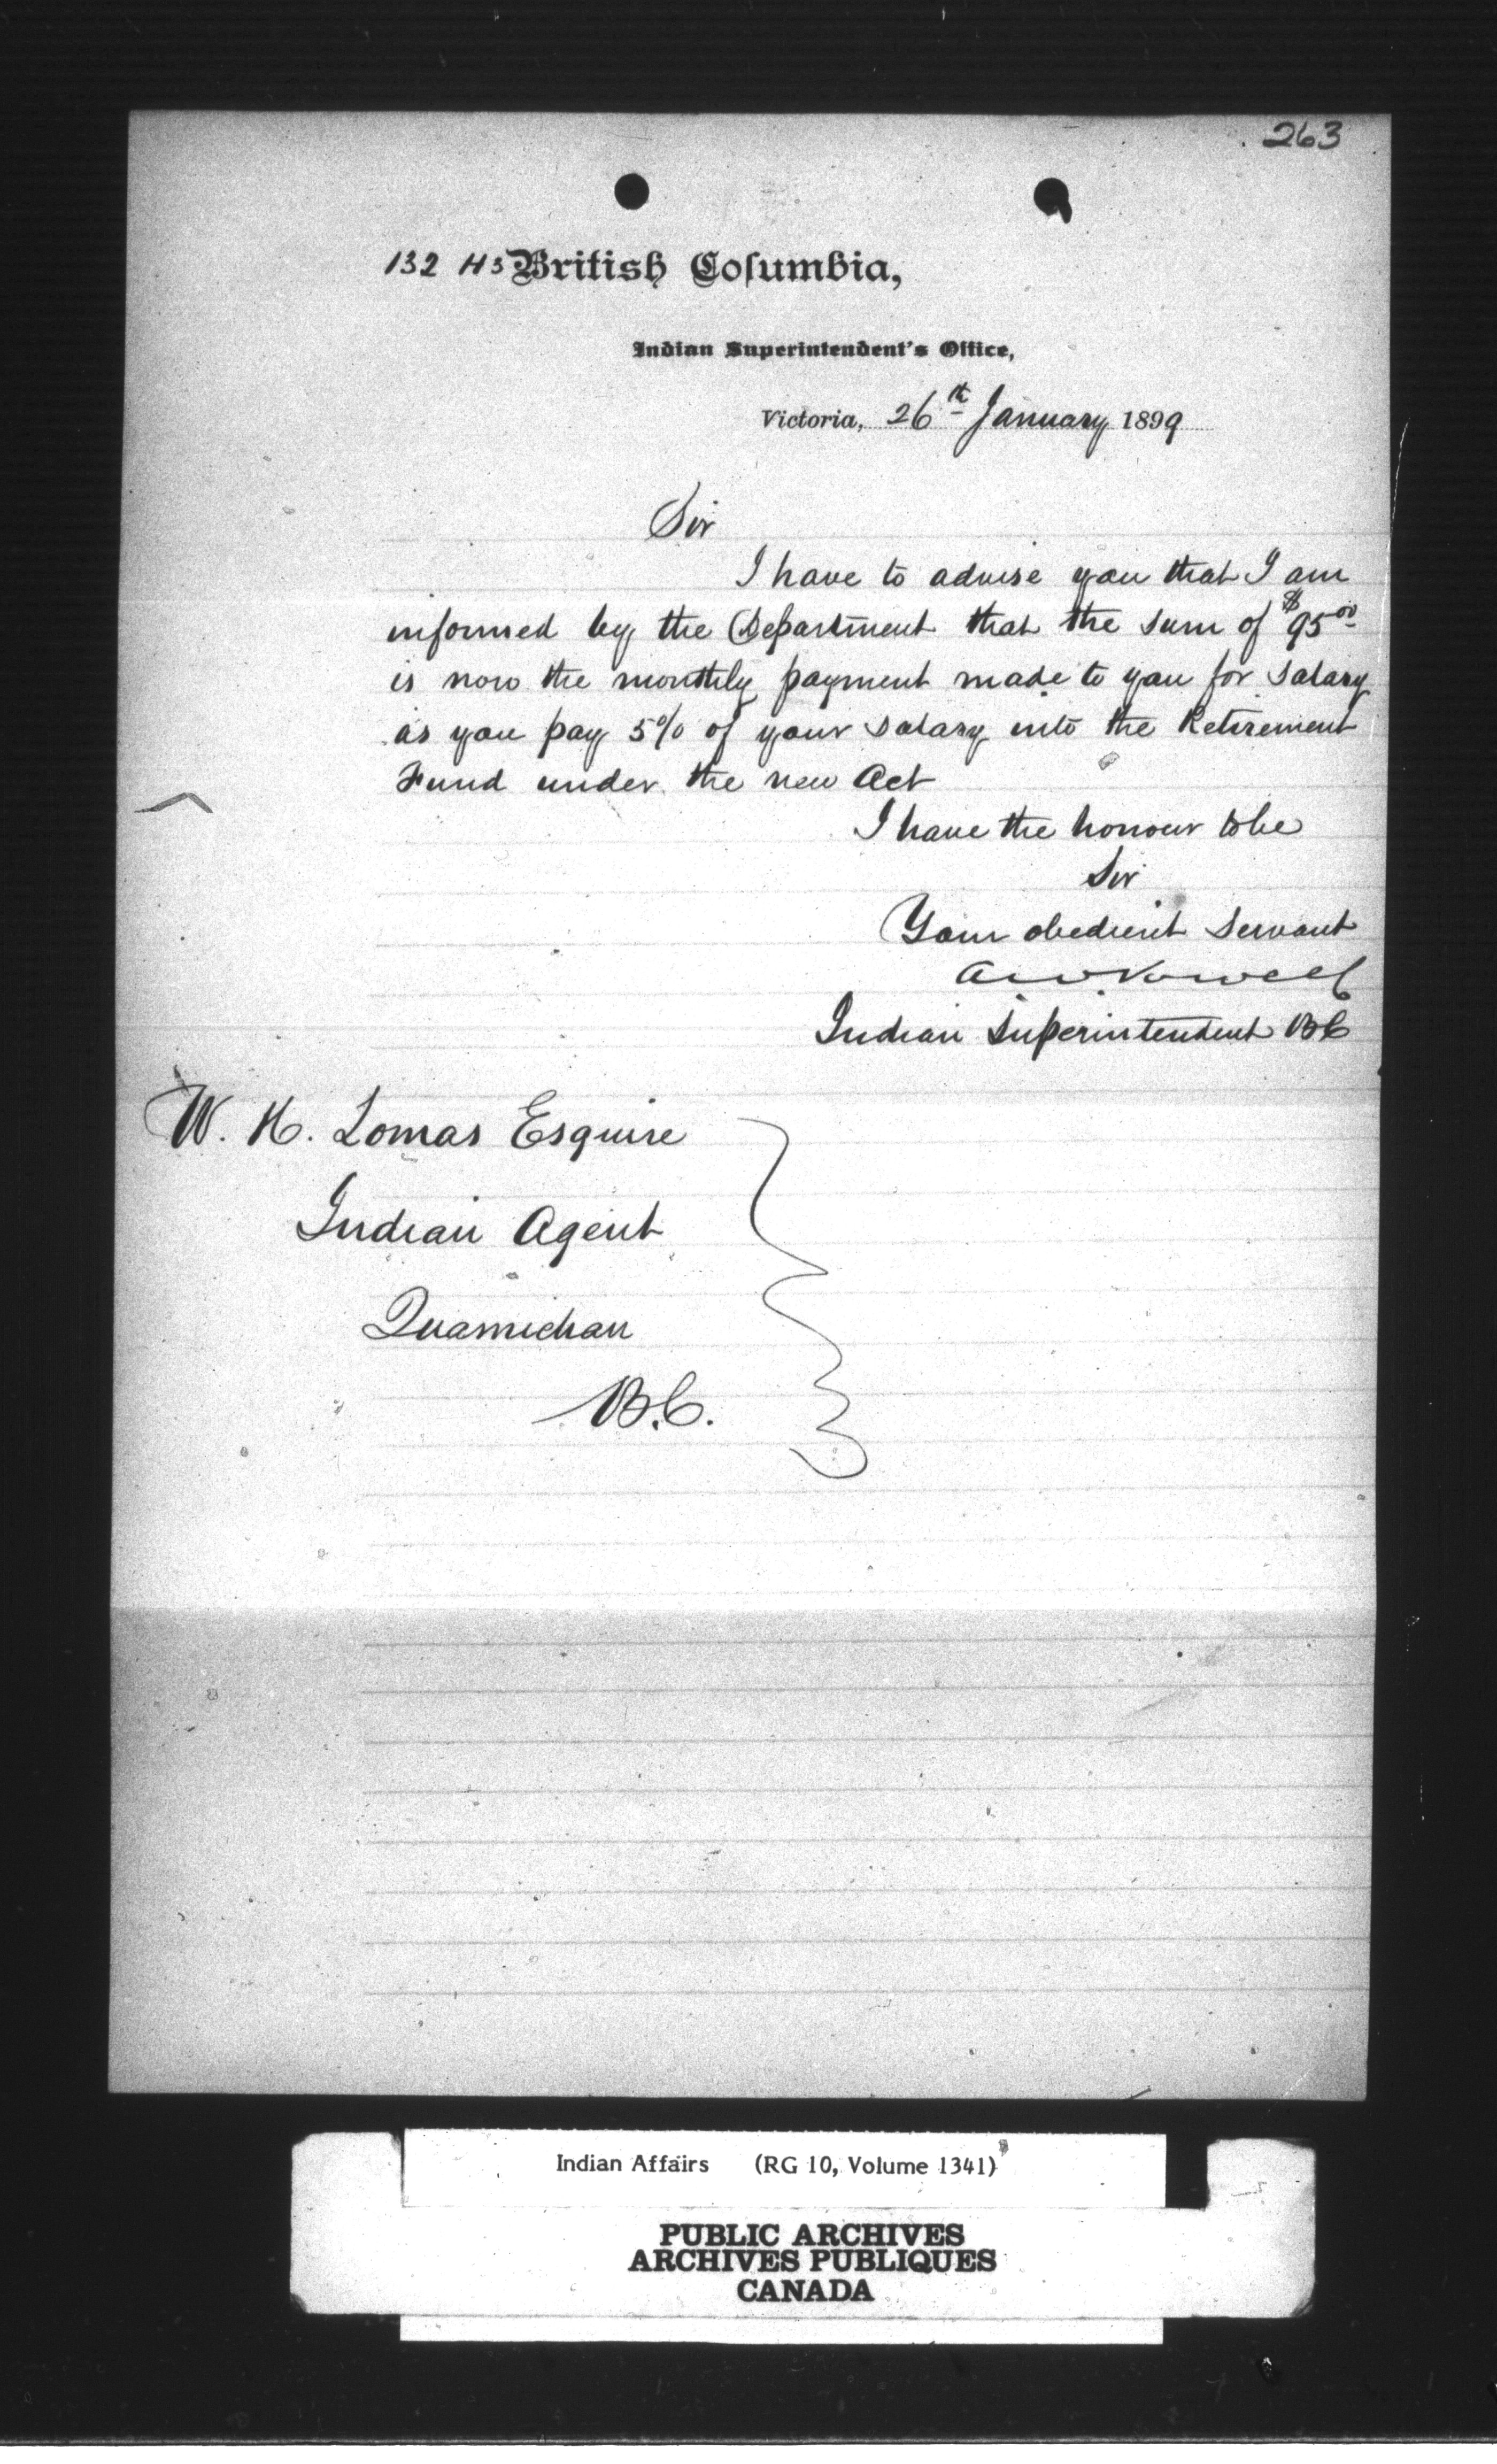 263
132 H3 British Columbia,
Indian Superintendent's Office,
Victoria, 26th January 1899
Sir
I have to advise you that I am
informed by the Department that the sum of $95.00
is now the monthly payment made to you for salary
as you pay 5% of your salary into the Retirement
Fund under the new Act
I have the honour to be
Sir
Your obedient servant
A. W. Vowell
Indian Superintendent BC
W. H. Lomas Esquire
Indian Agent
Quamichan
B.C.
Indian Affairs (RG 10, Volume 1341)
PUBLIC ARCHIVES
ARCHIVES PUBLIQUES
CANADA